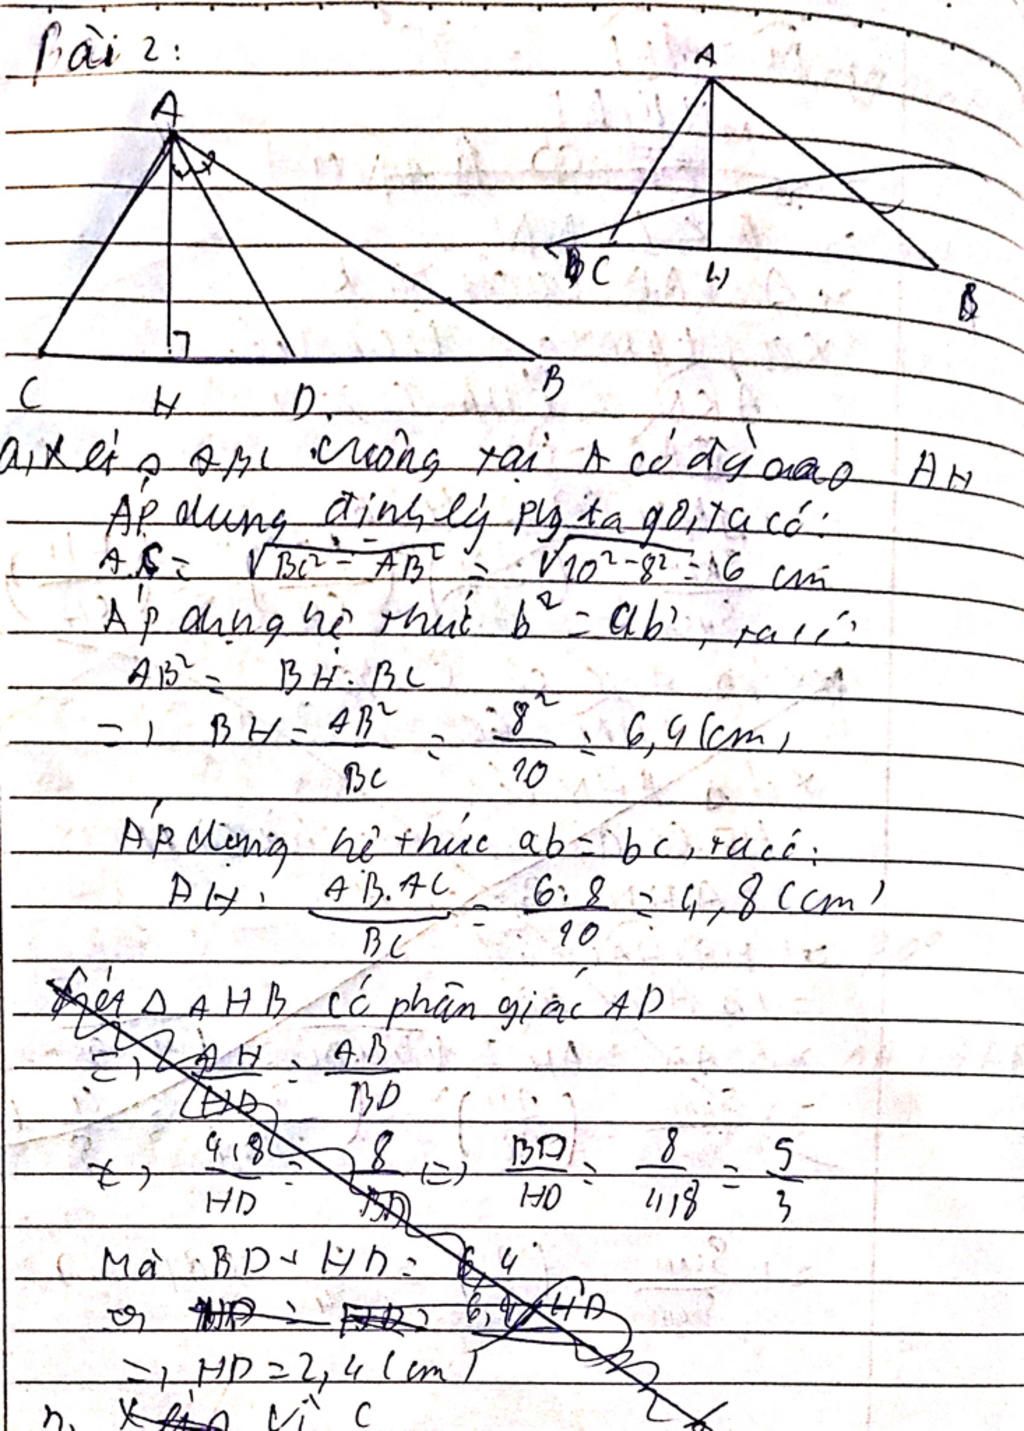 Bài 2:
A
A
C
H
B
C H D. B
a, Xét Δ ABC vuông tại A có đường cao AH
Áp dụng định lý Pytago, ta có:
AC = √BC² - AB² = √10² - 8² = 6 cm
Áp dụng hệ thức b² = ab', ta có:
AB² = BH. BC
=) BH = AB²/BC = 8²/10 = 6,4 (cm)
Áp dụng hệ thức ab = bc, ta có:
AH = AB.AC/BC = 6.8/10 = 4,8 (cm)
Xét Δ AHB có phân giác AD
=) AH/HD = AB/BD
=) 4,8/HD = 8/BD =) BD/HD = 8/4,8 = 5/3
Mà BD + HD = 6,4
=) HD = 6,4 HD
=) HD = 2,4 (cm)
vì C